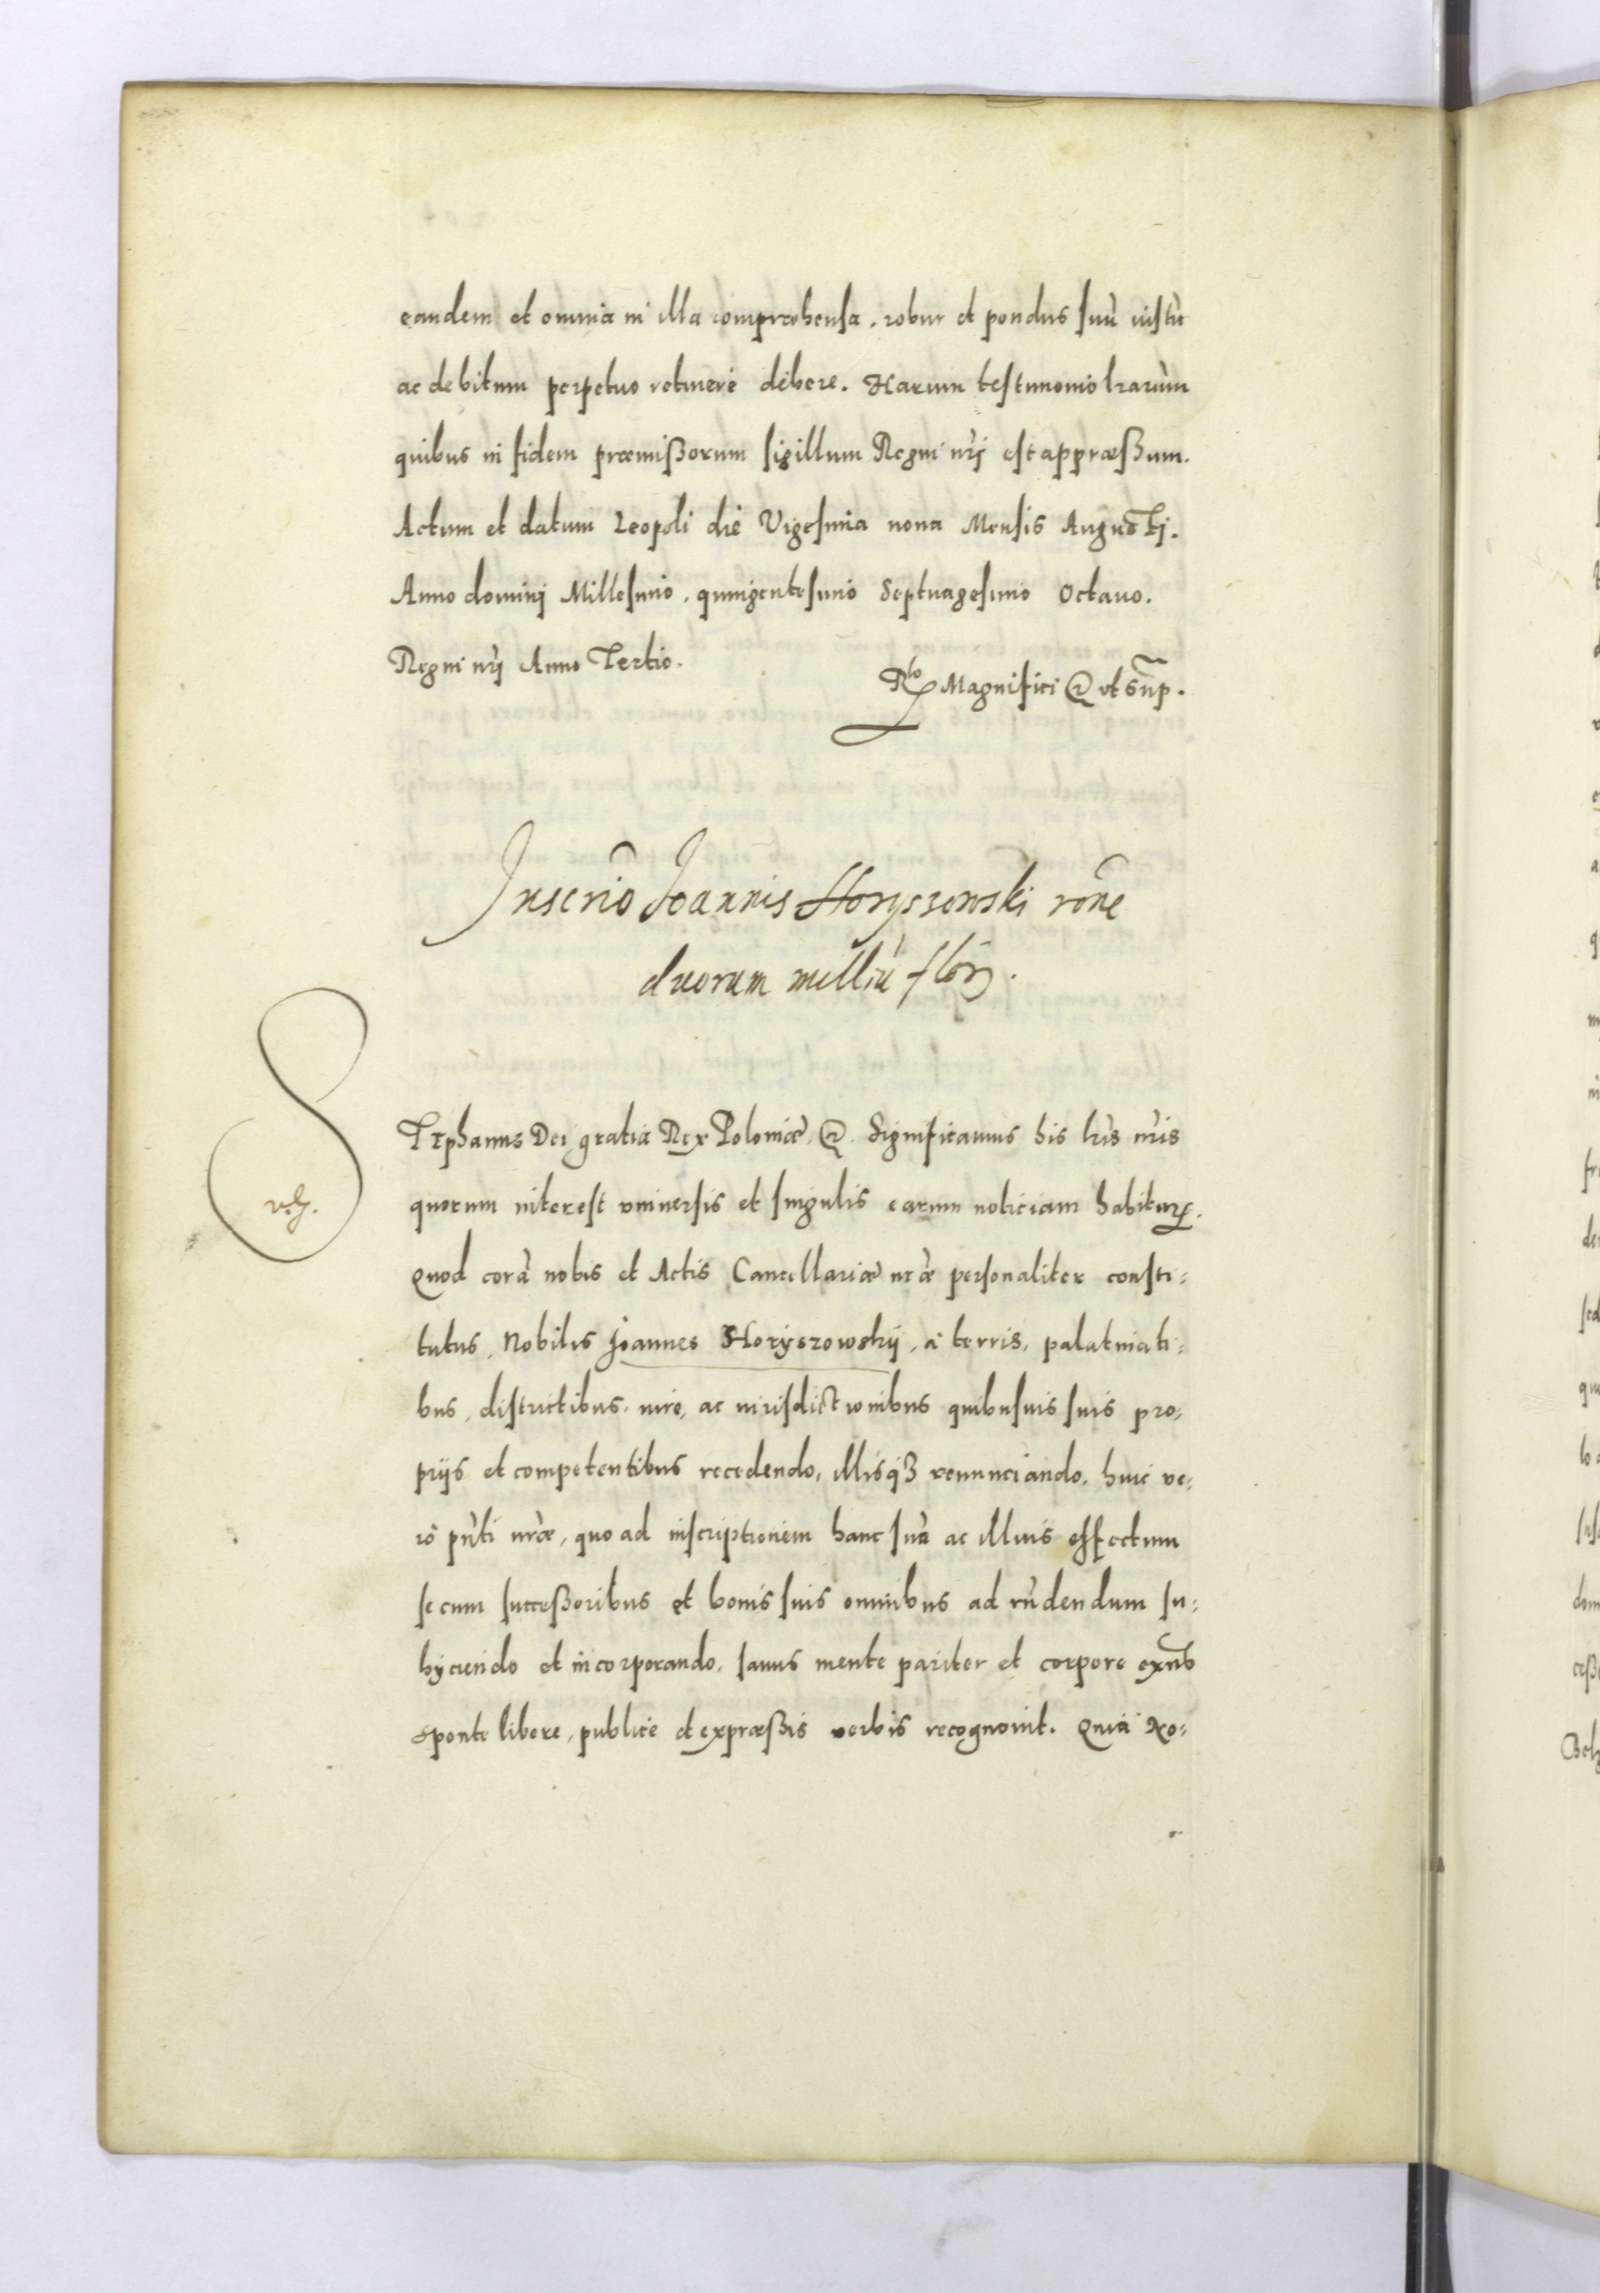 eandem et omnia in illa compræhensa, robur et pondus suũ iustũ
ac debitum perpetuo retinere debere. Harum testimonio lrarum
quibus in fidem præmißorum sigillum Regni nrĩ est appræßum.
Actum et datum Leopoli die Vigesima nona Mensis Augusti.
Anno dominj Millesimo, quingentesimo Septuagesimo Octauo.
Regni nrĩ Anno Tertio.
Rlo Magnifici @ vt sup.
Inscrio Joannis Horyszowski rõne
duorum milliũ flor.
STephanus Dei gratia Rex Poloniæ @. Significamus his lrĩs nrĩs
quorum interest vniuersis et singulis earum noticiam habiturꝭ.
Quod corã nobis et Actis Cancellariæ nrãe personaliter consti-
tutus, Nobilis Joannes Horyszowskij, a terris, palatinati-
bus, districtibus, iure, ac iurisdictionibus quibusuis suis pro-
prijs et competentibus recedendo, illisqȝ renunciando, huic ve-
ro pñti nrãe, quo ad inscriptionem hanc suã ac illius effectum
se cum succeßoribus et bonis suis omnibus ad rñdendum su-
byciendo et incorporando, sanus mente pariter et corpore exñs
sponte libere, publice et expræßis verbis recognouit. Quia